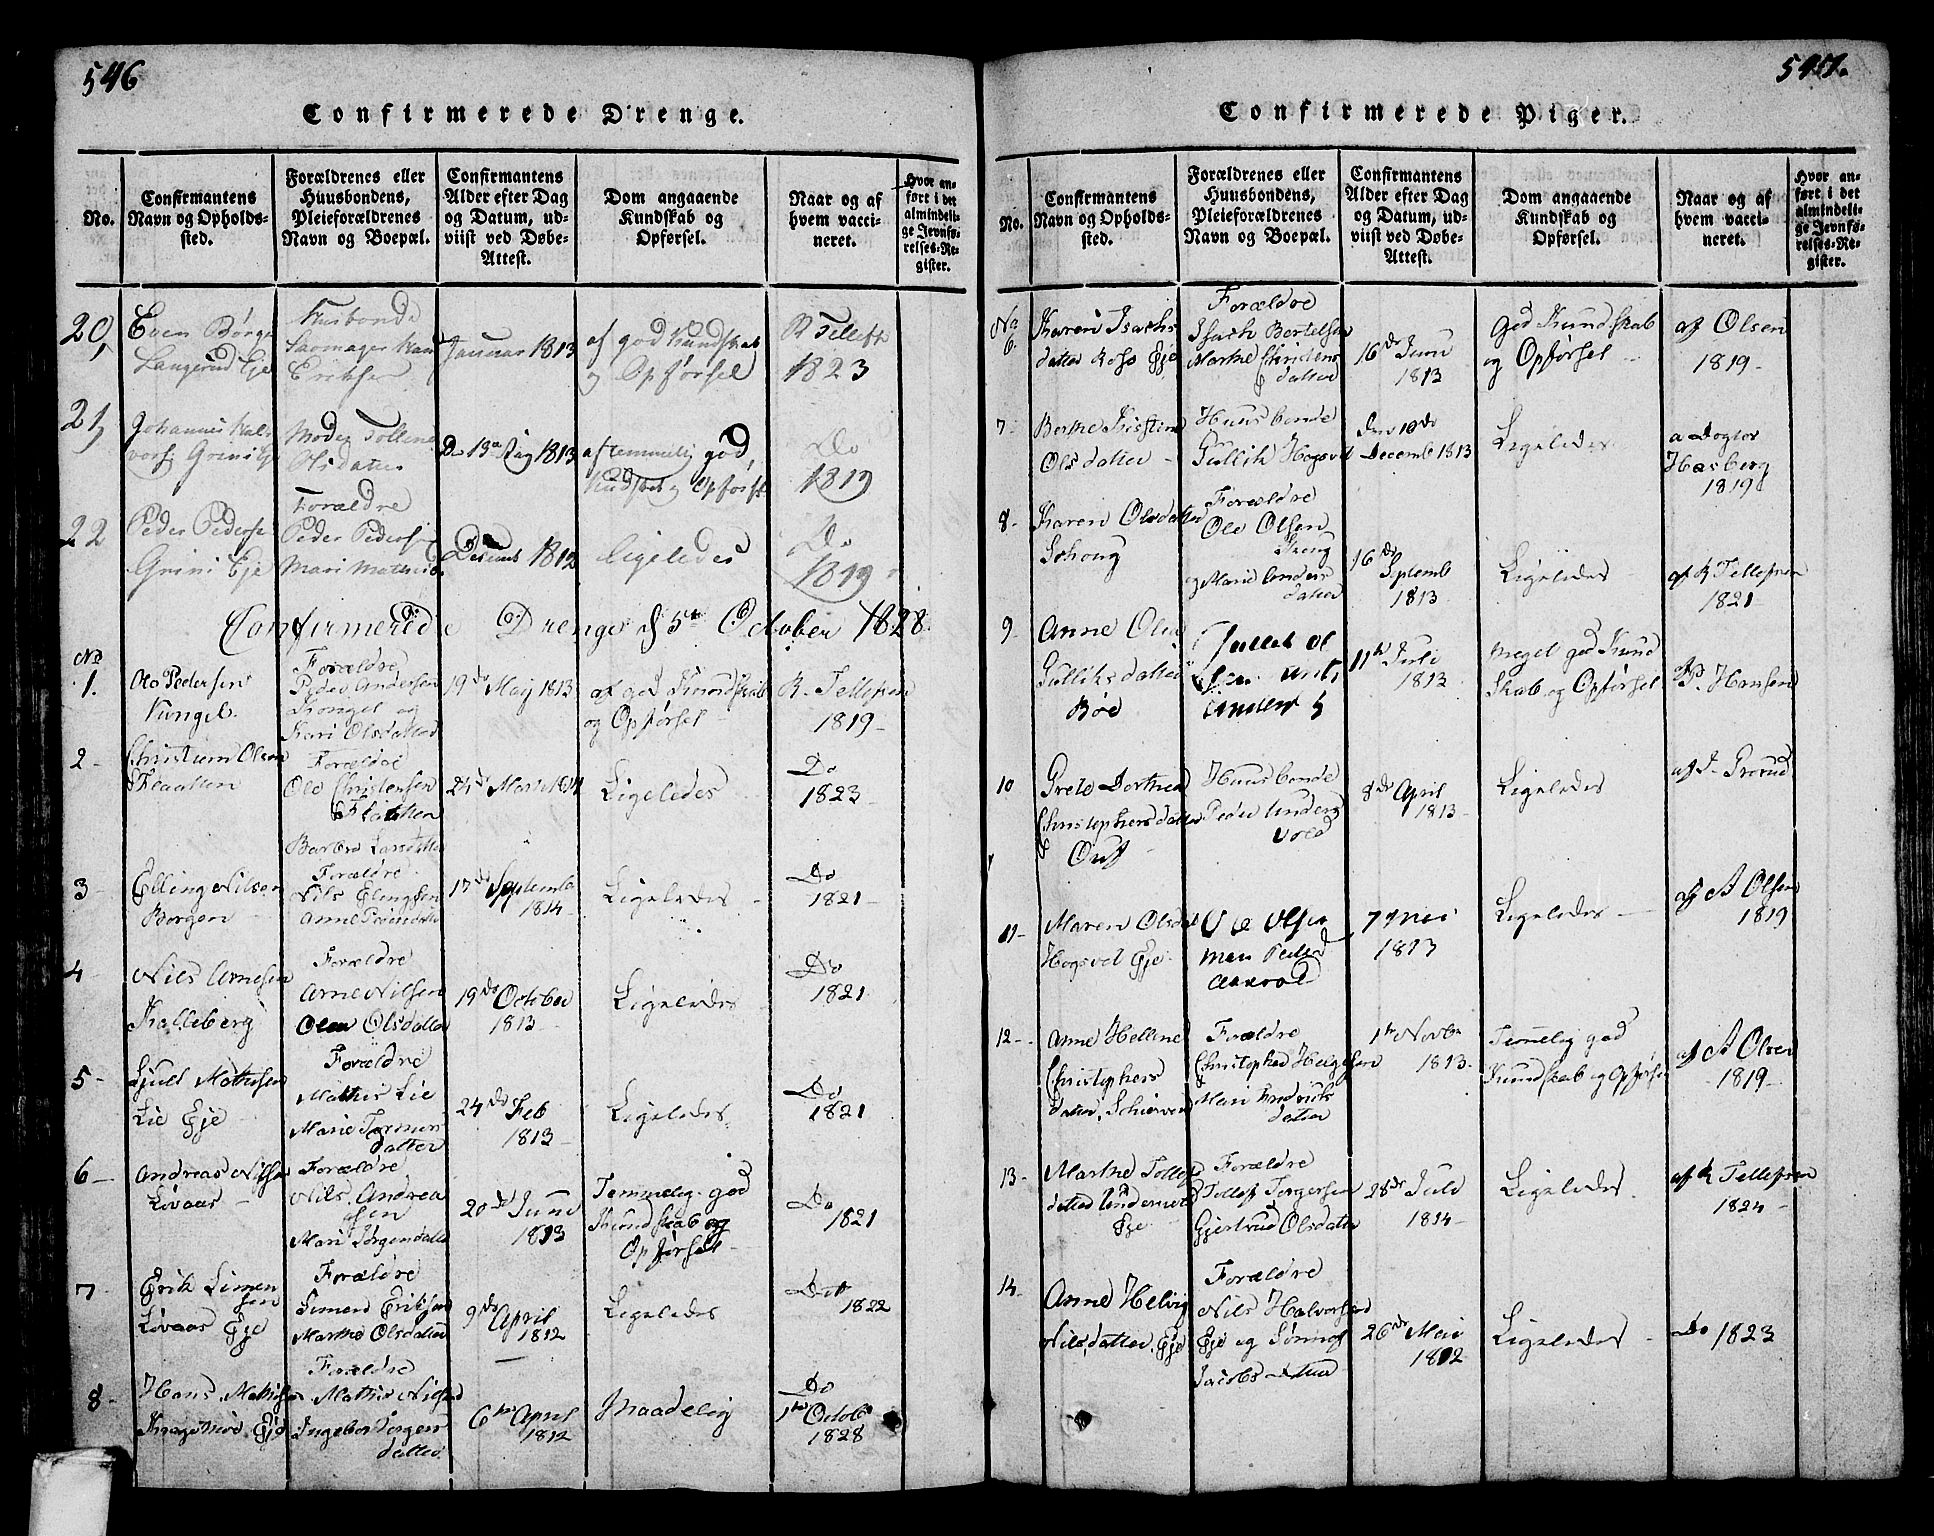 546
Confirmerede Drenge.
No.
Confirmantens
Navn og Opholds-
sted.
Forældrenes eller
Huusbondens,
Pleieforældrenes
Navn og Boepæl.
Confirmantens
Alder efter Dag
og Datum, ud-
viist ved Døbe-
Attest.
Dom angaaende
Kundskab og
Opførsel.
Naar og af
hvem vacci-
neret.
Hvor an-
ført i det
almindeli-
ge Jevnfø-
relses-Re-
gister.
20,
Even Børge
Langerud Eje
Husbonde
Eriksen
Januar 1813
af god Kundskab
og Opførsel
R Tellefs
1823
21,
Johannes Hal
vors Grini
Moder Tolline
Olsdatter
D 13 Aug 1813
af temmelig god,
Kundskab og Opførs
Do
1819
22
Peder Peders
Grini Eje
Forældre
Peder Peders
Mari Mathis
Decemb 1812
ligeledes
Do
1819
Confirmerede Drenge d 5te October 1828.
No
1.
Ole Pedersen
Kongel.
Forældre
Peder Andersen
Kongel og
Kari Olsdatter
19de Maj 1813
af god Kundskab
og Opførsel
R. Tellefsen
1819-
2-
Christian Olsen
Flaatten
Forældre
Ole Christensen
Flaatten
Barbro Larsdatter
24de Marts 1814
Ligeledes
Do
1823
3
Elling Nilsen
Borgen
Forældre
Nils Elingsen
Anne
17de September
1814-
Ligeledes
Do
1821
4
Nils Arnesen
Kalleberg
Forældre
Arne Nilsen
Olea Olsdatter
19de October
1813-
Ligeledes
Do
1821
5-
Gjull Mathisen
Lie Eje
Forældre
Mathis Lie
Marie Tormons
datter
24de Feb
1813-
Ligeledes
Do
1821
6-
Andreas Nilsen
Løvaas
Forældre
Nils Andrea
sen
Mari Jørgensdatter
20de Juni
1813
Temmelig god
Kundskab og
Opførsel
Do
1821
7-
Erik Simen
sen
Løvaas Eje
Forældre
Simen Eriksen
Marthe Olsdatter
9de April
1812
Ligeledes
Do
1822
8-
Hans Mathisen
Kragsmoe Eje
Forældre
Mathis Nilsen
Ingebor Jørgens
datter
6te April
1812
Maadelig
Do
1ste Octob
1828
547.
Confirmerede Piger.
No.
Confirmantens
Navn og Opholds-
sted.
Forældrenes eller
Huusbondens,
Pleieforældrenes
Navn og Boepæl.
Confirmantens
Alder efter Dag
og Datum, ud-
viist ved Døbe-
Attest.
Dom angaaende
Kundskab og
Opførsel.
Naar og af
hvem vacci-
neret.
Hvor an-
ført i det
almindeli-
ge Jevnfø-
relses-Re-
gister.
No
6.
Karen Isachs
datter Foss Eje
Forældre
Isach Bertelsen
Marthe Christens
datter
16de Juni
1813
God Kundskab
og Opførsel
af Olsen
1819-
7-
Berthe Kirstine
Olsdatter
Huusbonde
Gullik Hogsvel
Den 10de
Decemb 1813
Ligeledes
a Dogtor
Hasberg
1819
8-
Karen Olsdatter
Forældre
Ole Olsen
og Marie Anders
datter
16de
Septemb
1813
Ligeledes
af R Tellefsen
1821-
9-
Anne Olia
Gulliksdatter
Bøe
11te Juli
1813
meget god Kund
skab og Opførsel
af P. Hansen
10
Grete Dorthea
Christophersdatter
Huusbonde
Peder Anders
8de April
1813-
Ligeledes
11-
Maren Olsdat
Hogsvel Eje
Ole Olsen
Mari Peders
7 Mei
1813
Ligeledes
af A Olsen
1819
12-
Anne Hellene
Christophers
datter, Schierven
Forældre
Christopher Helgesen
Mari Fredriks
datter
1te Novbr
1813-
Temelig god
Kundskab og Opførsel
af A Olsen
1819-
13-
Marthe Tollefs
datter
Eje
Forældre
Tollef Torgersen
Gjertrud Olsdatter
28de Juli
1814-
Ligeledes
af R Tellefsen
1824-
14-
Anne Helvig
Nilsdatter, Eje
Forældre
Nils Halvorsen
Eje og Sønnof
Jacobsdatter
26de Mai
1812
Ligeledes
Do 1823